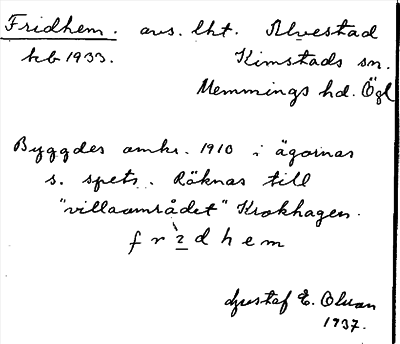 Fridhem. avs. lht. Alvestad
kb 1933. Kimstads sn.
Memmings hd. Ögl
Byggdes omkr. 1910 i ägornas
s. spets. Räknas till
"villaområdet" Krokhagen.
f r i d h e m
Gustaf E. Olsson
1937.